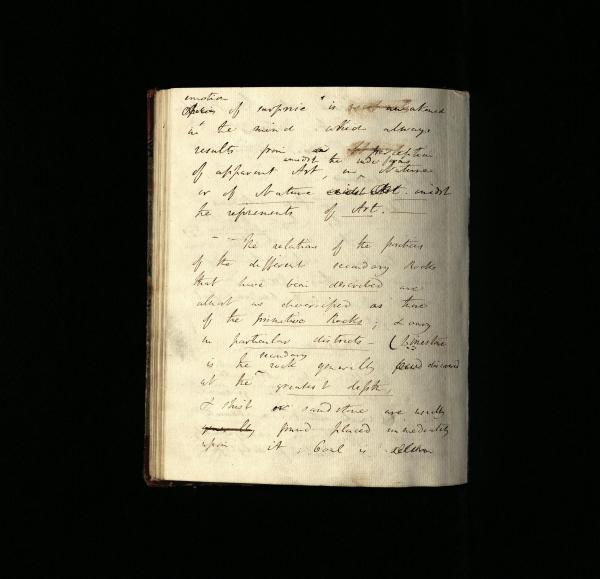 emotion
of surprise is awakened
in the mind which always
results from perception
amidst the rude forms
of apparent Art, in Nature
or of Nature amidst
the refinements of Art. —
— The relations of the positions
of the different secondary Rocks
that have been described are
almost as diversified as those
of the primitive Rocks; & vary
in particular districts - Limestone
secondary
is the rock generally discovered
at the greatest depth,
& shist or sandstone are usually
generally found placed immediately
upon it, Coal is seldom